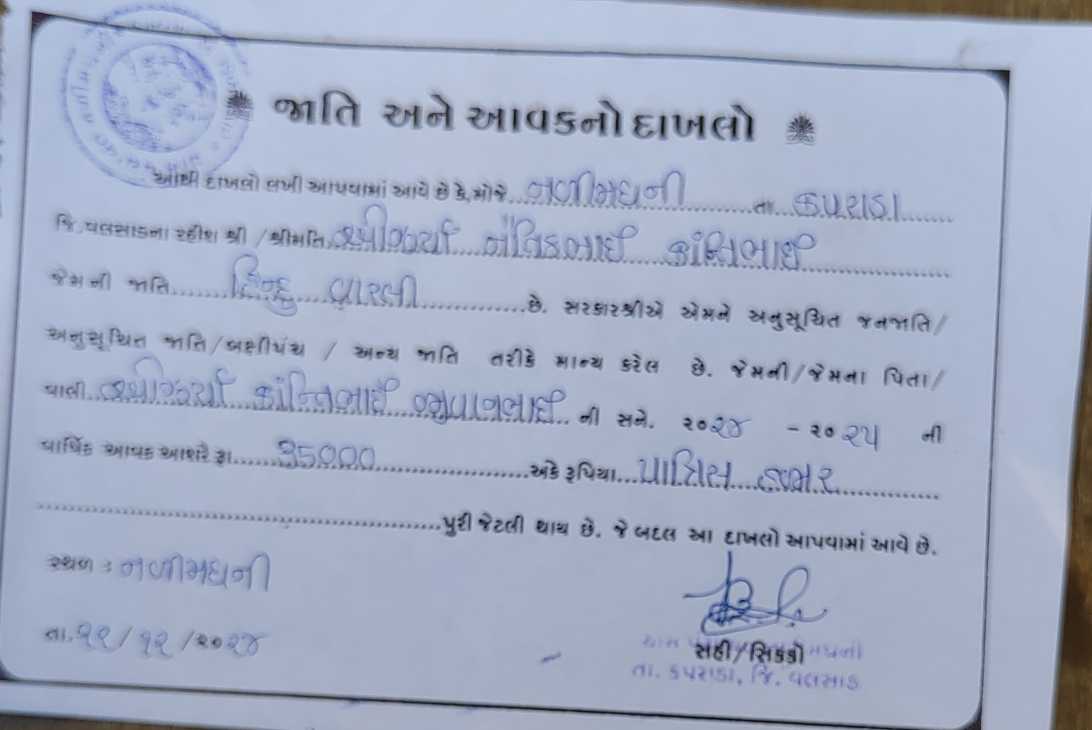 જાતિ અને આવકનો દાખલો
આથી દાખલો લખી આપવામાં આવે છે કે, મોજે. નળીમધની તા. કપરાડા
જિ. વલસાડના રહીશ શ્રી / શ્રીમતિ. નૈતિકભાઈ કાંતિભાઈ
જેમની જાતિ હિન્દુ વારલી છે. સરકારશ્રીએ એમને અનુસૂચિત જનજાતિ/
અનુસૂચિત જાતિ/બક્ષીપંચ / અન્ય જાતિ તરીકે માન્ય કરેલ છે. જેમની/જેમના પિતા/
વાલી. કાંતિભાઈ ની સને. ૨૦૨૪ - ૨૦૨૫ ની
વાર્ષિક આવક આશરે રૂા. 35000 અંકે રૂપિયા પાત્રિસ હજાર
પુરી જેટલી થાય છે. જે બદલ આ દાખલો આપવામાં આવે છે.
સ્થળ : નળીમધની
તા. ૧૨ /૨૦૨૪
સહી/સિક્કો
તા. કપરાડા, જિ. વલસાડ